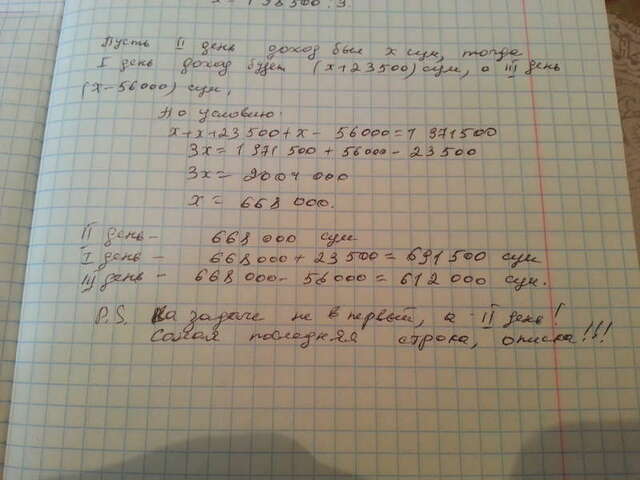 x = 198500 : 3.
Пусть II день доход был x сум, тогда
I день доход будет (x+23500) сум, а III день
(x-56000) сум,
По условию:
x+x+23500+x-56000=1 971500
3x=1 971 500+56000-23500
3x=2004 000
x= 668 000.
II день- 668 000 сум
I день - 668 000+23 500=691 500 сум
III день - 668 000-56 000=612 000 сум.
P.S. На задаче не в первый, а II день!
Самая последняя строка, описка!!!